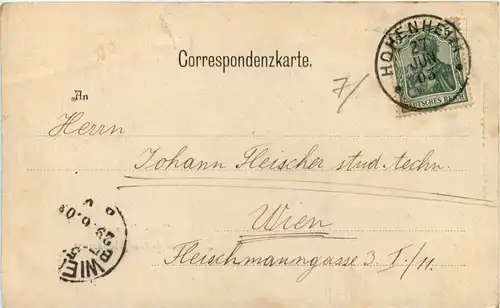 HOHENHEIM
27
JUN
03
DEUTSCHES REICH
Correspondenzkarte.
7/
An
Herrn
Johann Fleischer stud. techn.
Wien
Fleischmanngasse 3 I/11.
WIE
29.6.03